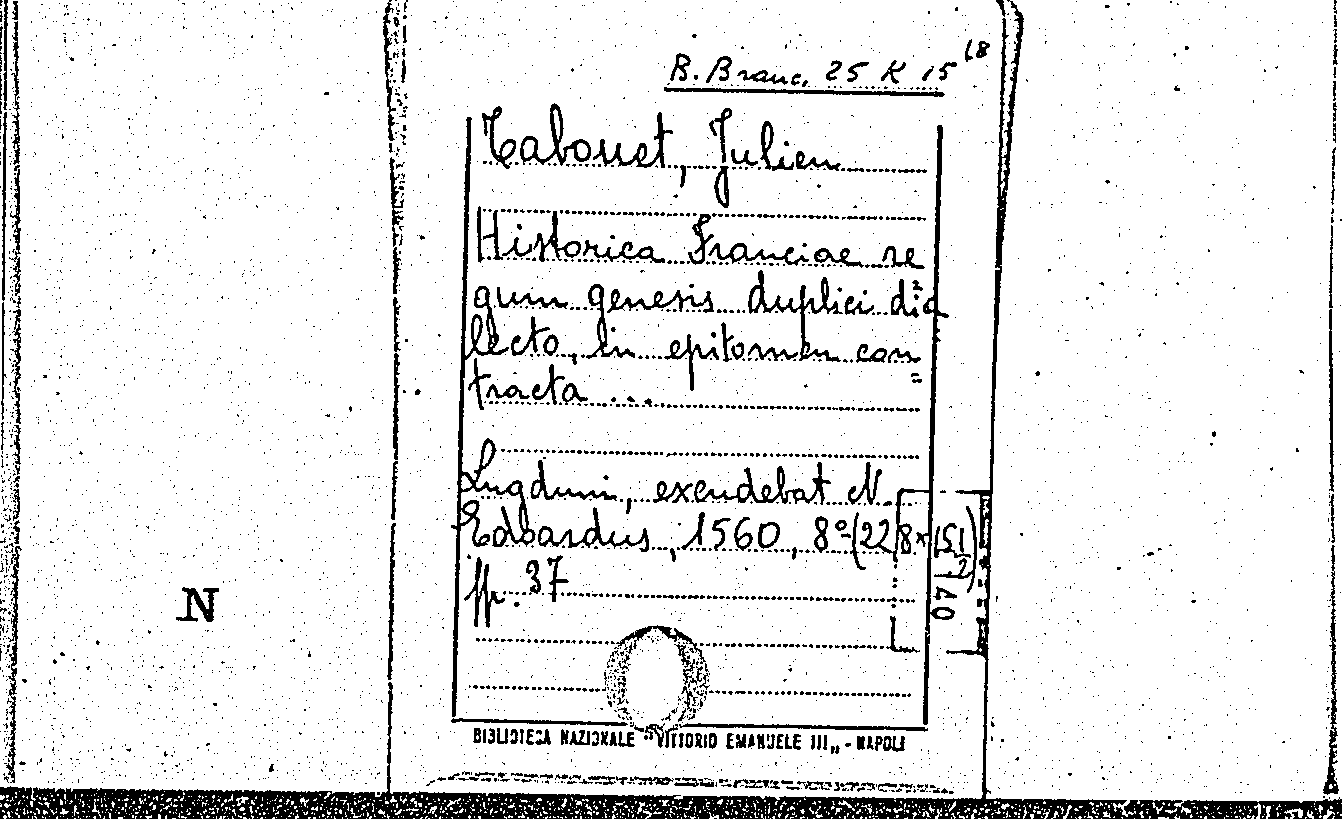 B. Branc. 25 K 15 18
Tabouet, Julien
Historica Franciae re
gum genesis duplici dia
lecto, in epitomen con=
tracta ...
Lugduni, excudebat N.
Edoardus, 1560, 8º
ff. 37
N
BIBLIOTECA NAZIONALE "VITTORIO EMANUELE III„ - NAPOLI